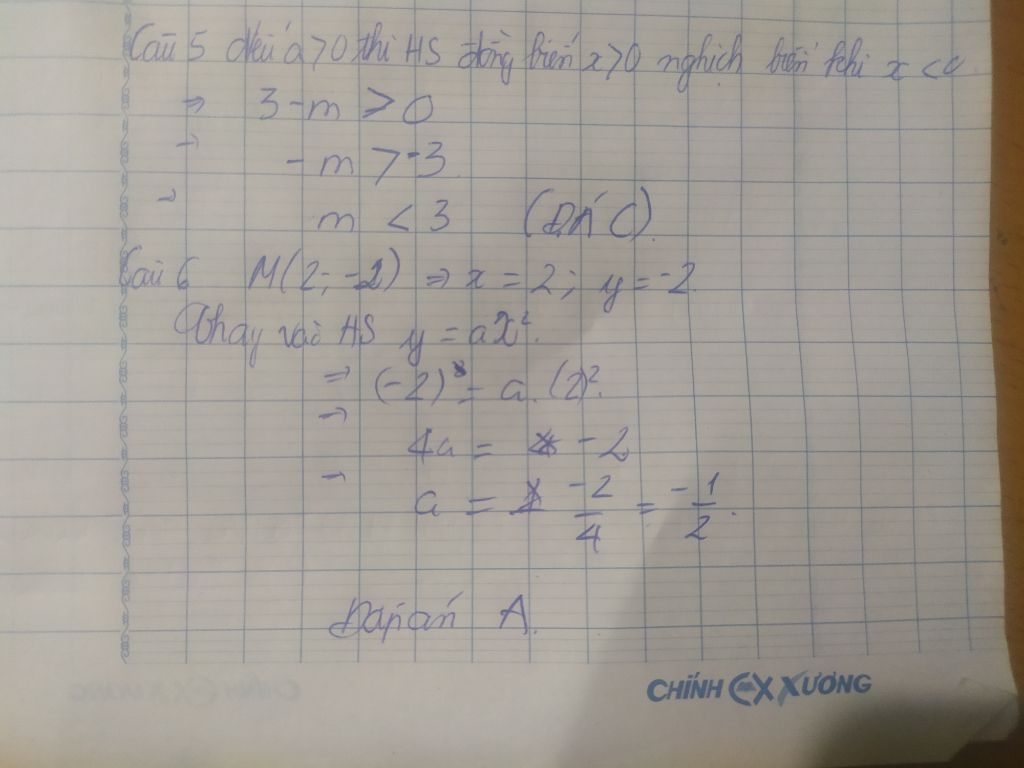 Câu 5 Nếu a > 0 thì HS đồng biến x > 0 nghịch biến khi x < 0
⇒ 3 - m > 0
→ - m > -3
→ m < 3 (ĐÁ C).
Câu 6 M(2; -2) ⇒ x = 2; y = -2
Thay vào HS y = ax².
⇒ (-2) = a. (2)².
→ 4a = -2
→ a = -2/4 = -1/2.
Đáp án A.
CHÍNH EX XƯƠNG